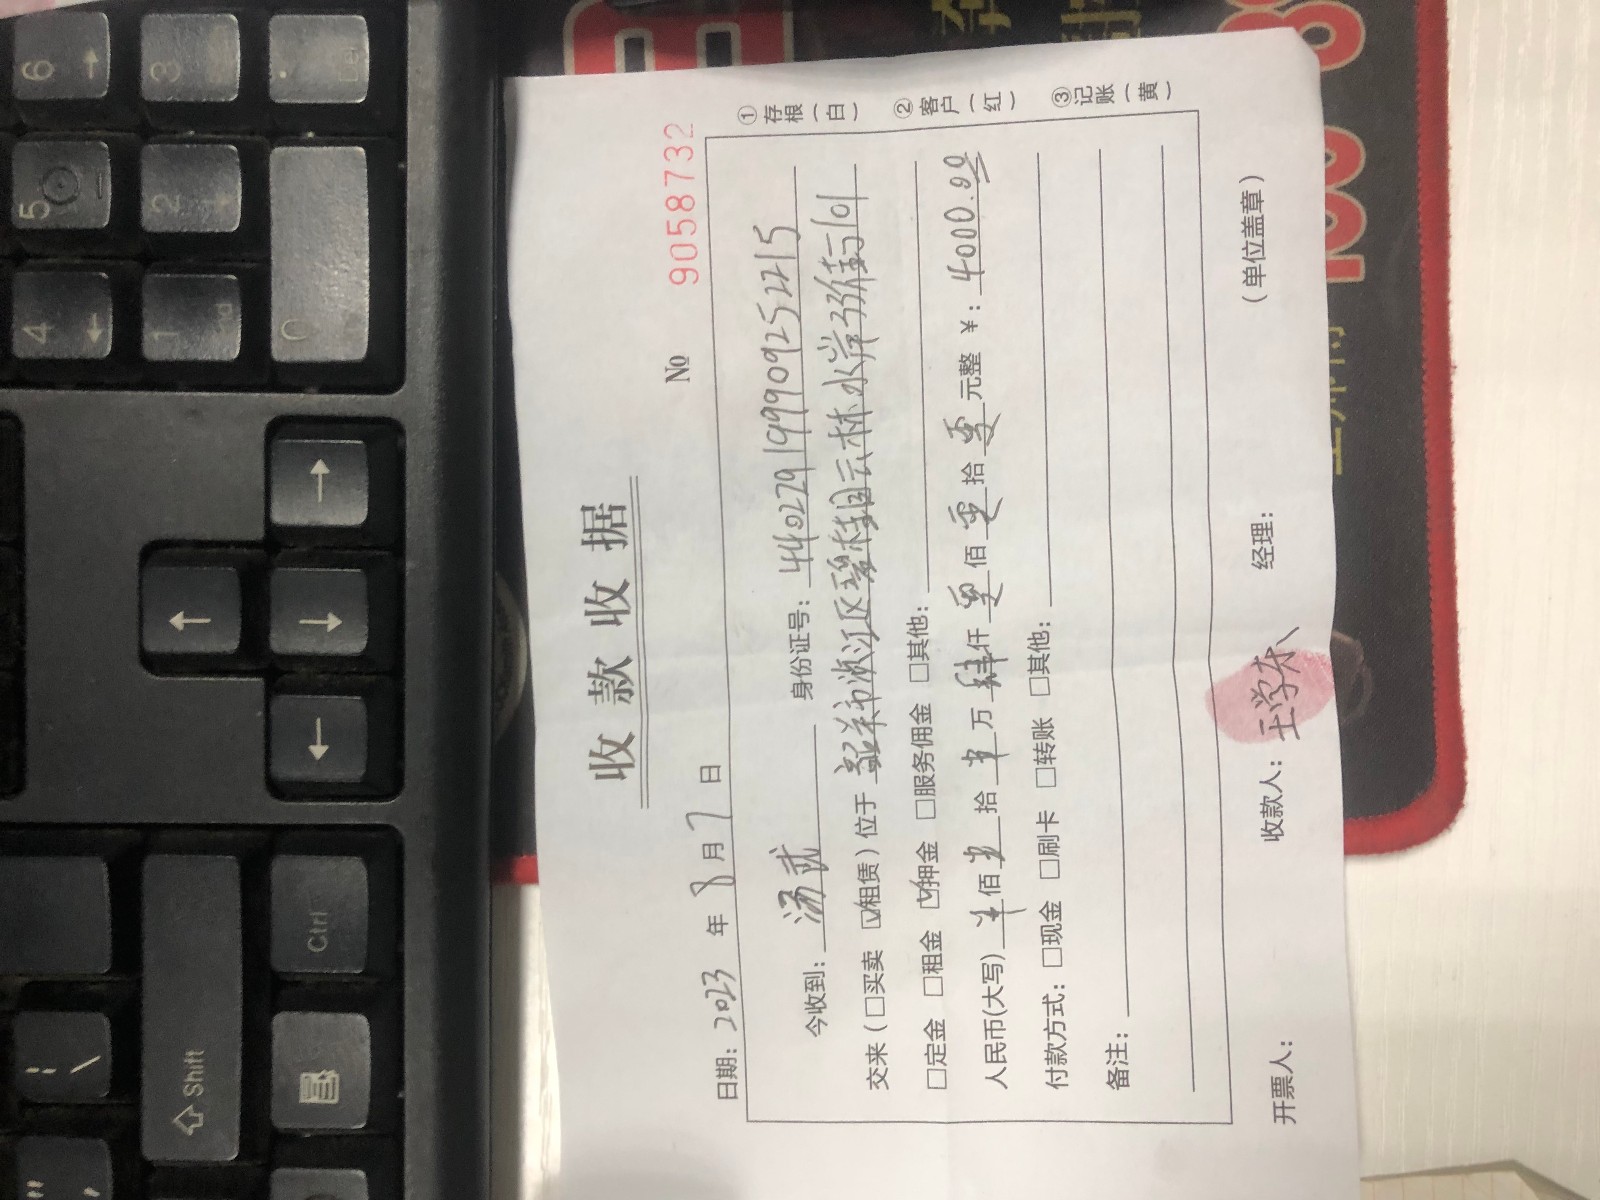 收款收据
№ 9058732
日期: 2023 年 8 月 7 日
今收到: 汤武 身份证号: 440229199909252215
交来 (□买卖 ☑租赁) 位于 韶关市浈江区碧桂园云林水岸33街5号101
□定金 □租金 ☑押金 □服务佣金 □其他:
人民币(大写) 佰 拾 万 肆 仟 零 佰 零 拾 零 元整 ¥: 4000.00
付款方式: □现金 □刷卡 □转账 □其他:
备注:
开票人: 收款人: 王学东 经理: (单位盖章)
①存根(白) ②客户(红) ③记账(黄)
6
3
.
Del
5
2
4
1
0
Ctrl
Shift